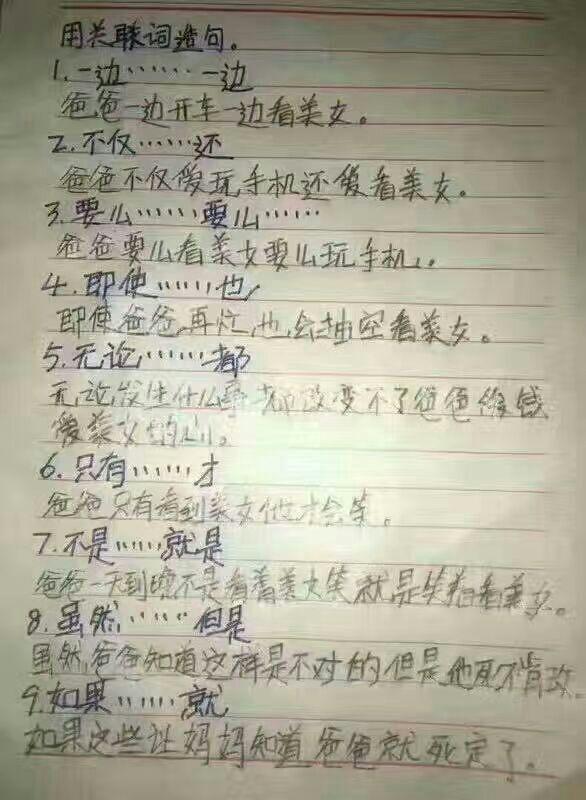 用关联词造句。
1.一边……一边
爸爸一边开车一边看美女。
2.不仅……还
爸爸不仅爱玩手机还爱看美女。
3.要么……要么……
爸爸要么看美女要么玩手机。
4.即使……也
即使爸爸再忙,也会抽空看美女。
5.无论……都
无论发生什么事都改变不了爸爸
爱美女的心。
6.只有……才
爸爸只有看到美女他才会笑。
7.不是……就是
爸爸一天到晚不是看着美女笑就是笑着看美女。
8.虽然……但是
虽然爸爸知道这样是不对的但是他死不肯改
9.如果……就
如果这些让妈妈知道爸爸就死定了。